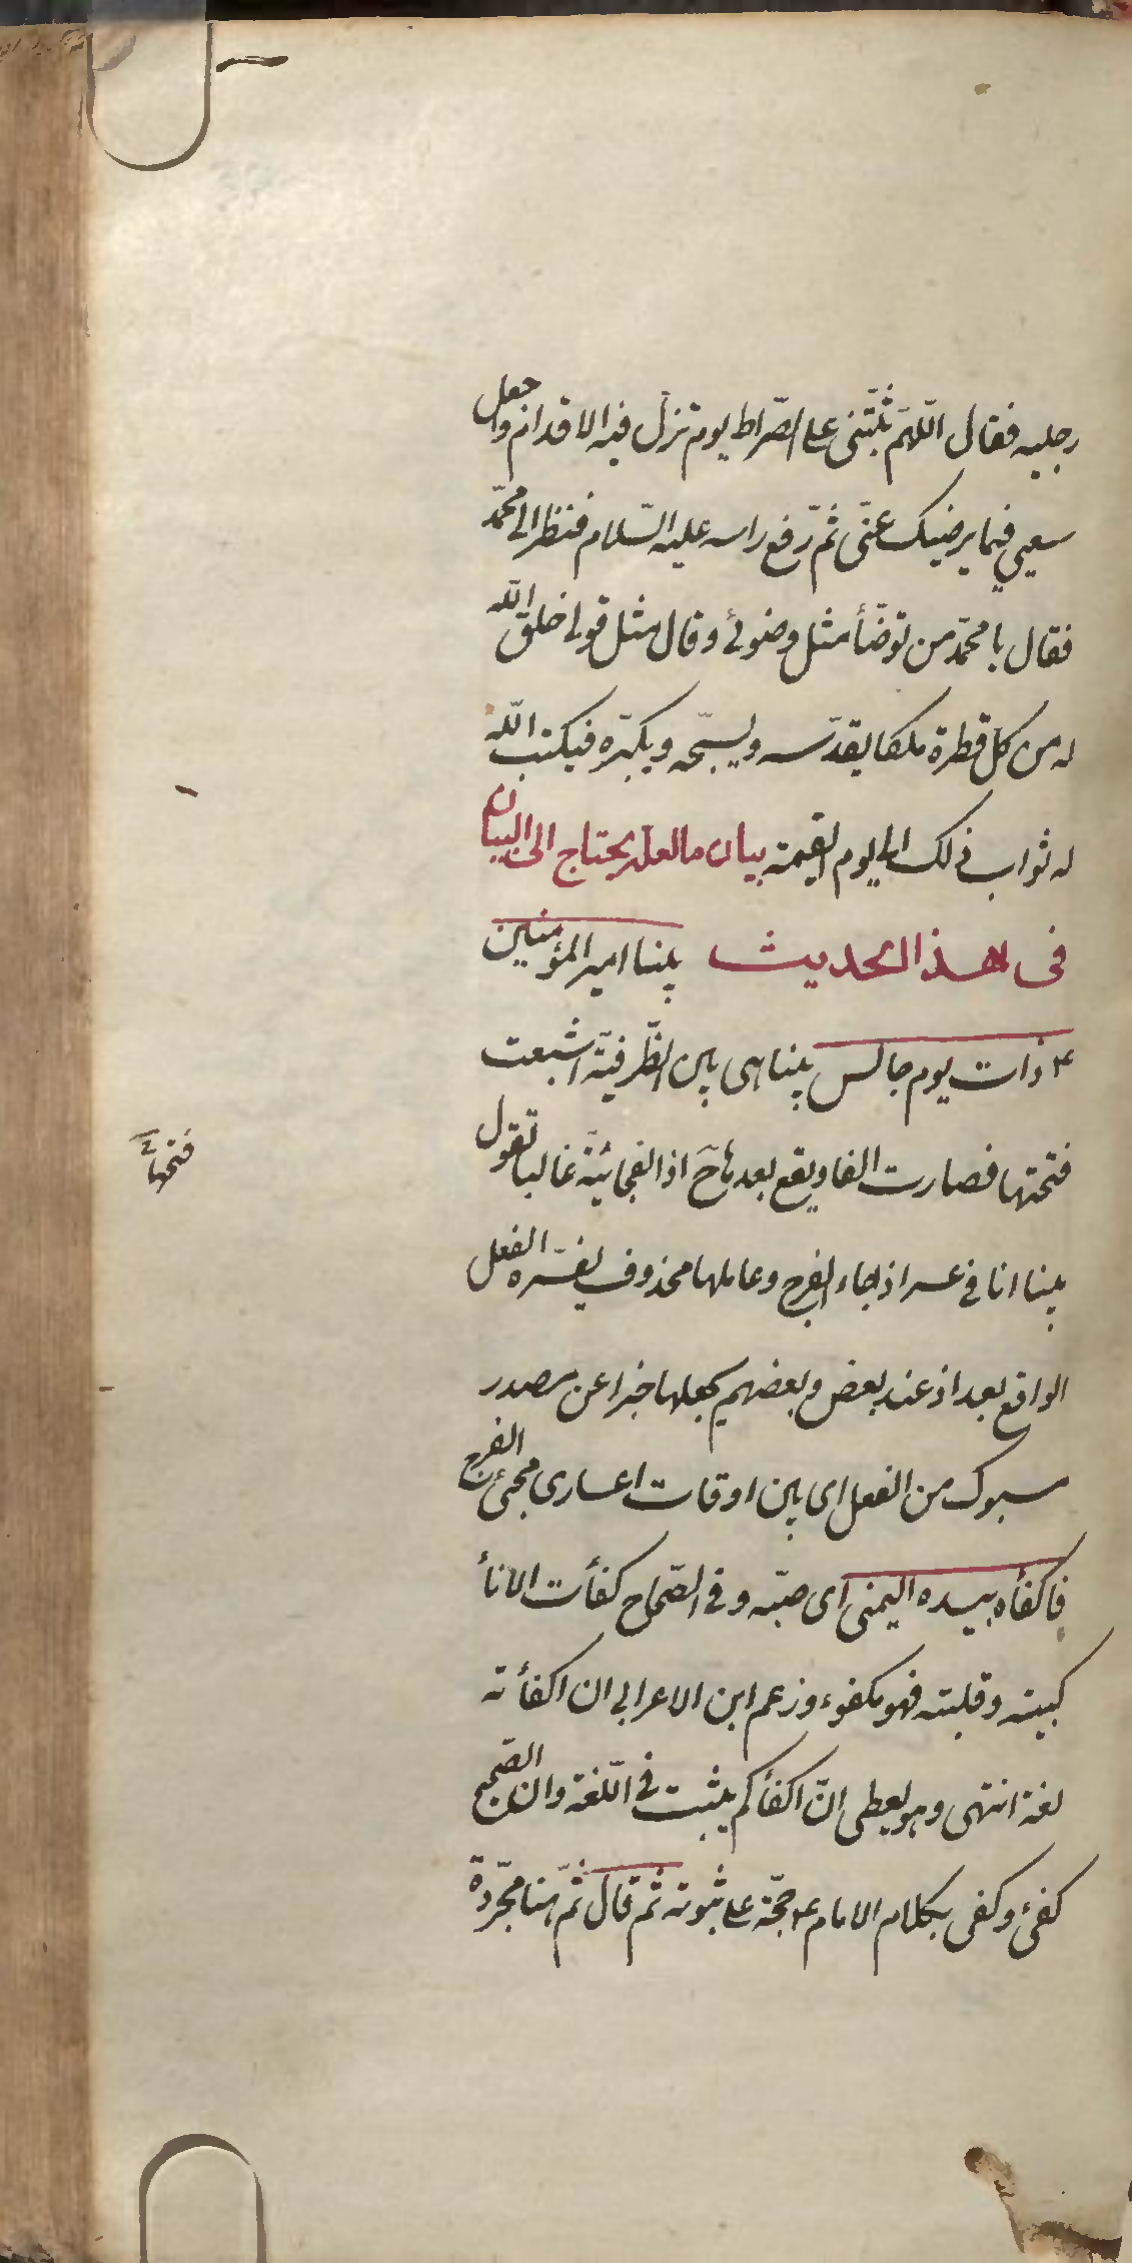 رجليه فقال اللّهمّ ثبّتنى على الصّراط يوم تزل فيه الاقدام واجعل
سعيي فيما يرضيك عنّى ثمّ رفع راسه عليه السّلام فنظر الى محمّد
فقال يا محمّد من توضّأ مثل وضوئى وقال مثل قولى خلق اللّه
له من كل قطرة ملكا يقدّسه ويسبّحه ويكبّره فيكتب اللّه
له ثواب ذلك الى يوم القيمة بيان ما لعلّه يحتاج الى البيان
فى هذا الحديث بينا امير المؤمنين
ع ذات يوم جالس بينا هى بين الظّرفيّة اشبعت
فتحتها فصارت الفا ويقع بعدها ح اذا الفجائيّة غالبا تقول
بينا انا فى عسر اذا جاء الفرج وعاملها محذوف يفسّره الفعل
الواقع بعد اذ عند بعض وبعضهم يجعلها خبرا عن مصدر
مسبوك من الفعل اى بين اوقات اعسارى مجئ الفرج
فاكفأه بيده اليمنى اى صبّه وفى الصّحاح كفأت الانأ
كببته وقلبته فهو مكفوء وزعم ابن الاعرابى ان اكفأته
لغة انتهى وهو يعطى انّ اكفأ لم يثبت فى اللّغة وان الصّحيح
كفئ وكفى بكلام الامام ع حجّة على ثبوته ثم قال ثمّ هنا مجرّدة
فتحها